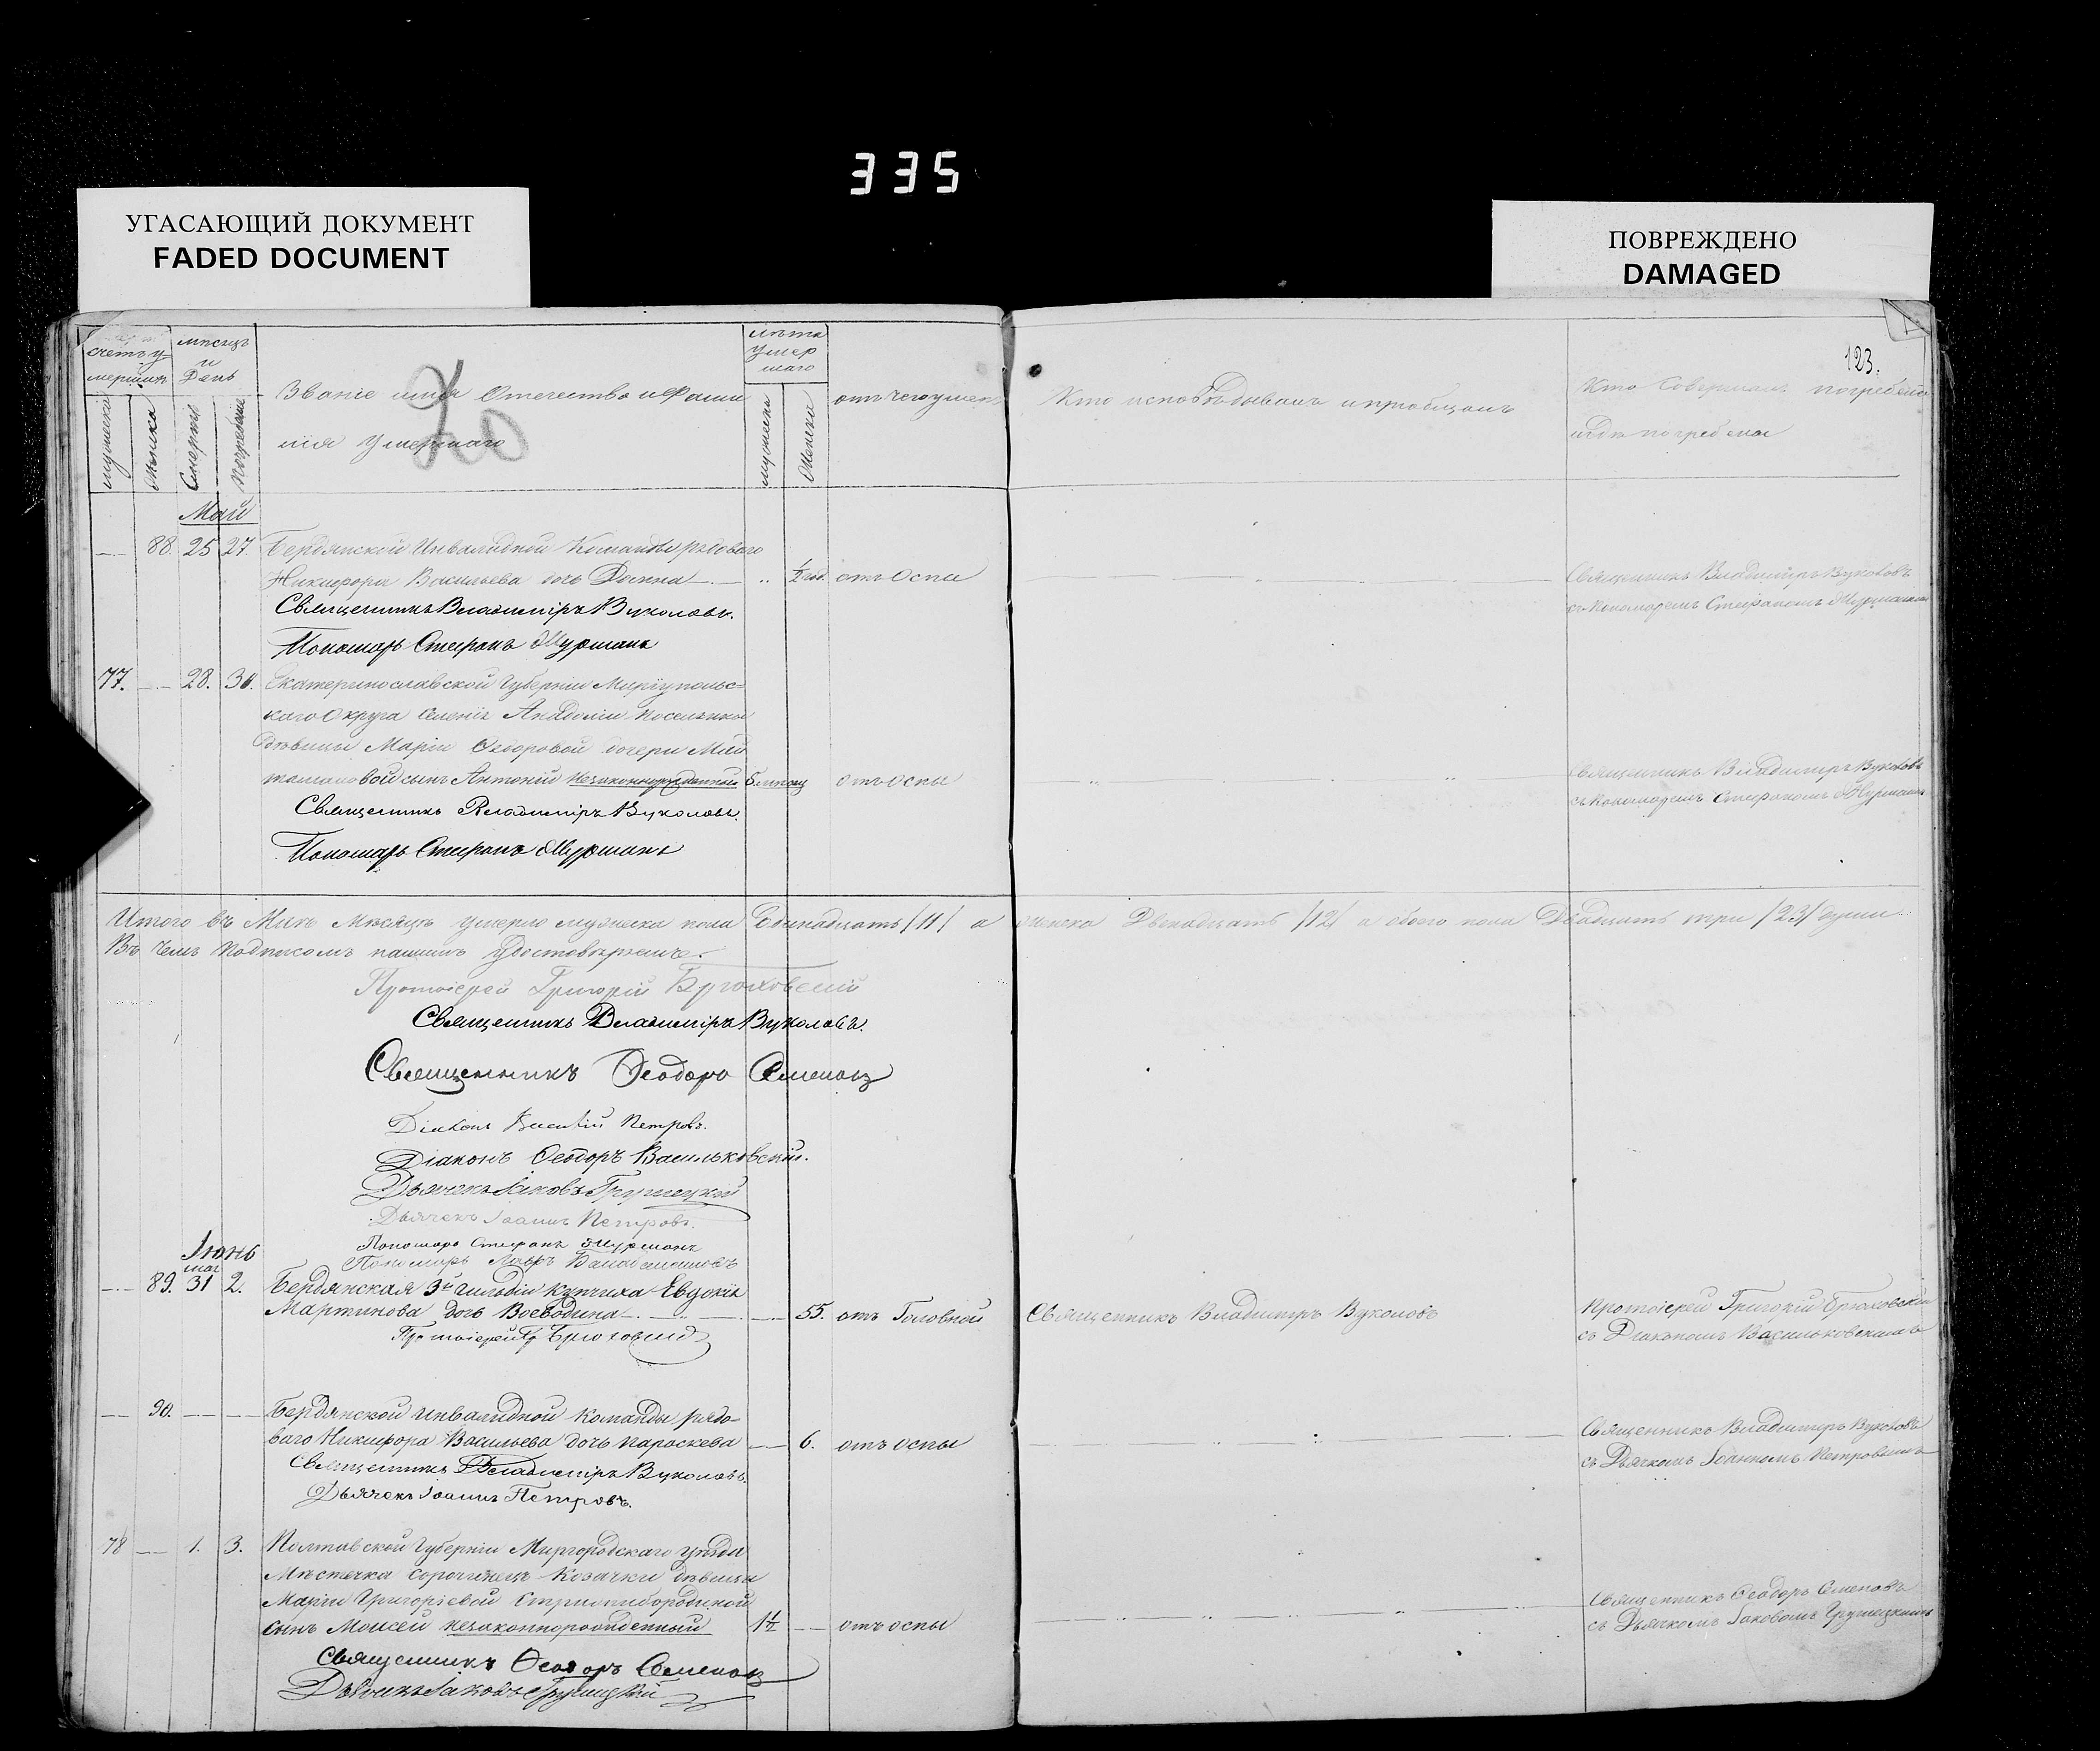 335
УГАСАЮЩИЙ ДОКУМЕНТ
FADED DOCUMENT
ПОВРЕЖДЕНО
DAMAGED
123.
счетъ умершихъ
мужеска
женска
мѣсяцъ и День
Смерти
Погребенія
Званіе имя Отечество и Фами
лія Умершаго
лѣта Умершаго
мужеска
Женска
отъ чего умеръ
Кто исповѣдывалъ и пріобщалъ
Кто Совершалъ погребеніе
и гдѣ погребены
Май
88. 25 27. Бердянской Инвалидной Команды рядоваго
Никифора Васильева дочь 1/2 год. отъ Оспы
Священникъ Владимиръ Вуколовъ
съ Пономаремъ Стефаномъ
Священникъ Владиміръ Вуколовъ.
Пономарь Стефанъ Мурманъ
77. 28. 30. Екатеринославской Губерніи Маріупольс=
каго Округа Поселянки
дѣвицы Маріи Ѳедоровой дочери
сынъ Антоній Незаконнорожденный 5 мѣсяц отъ оспы
Священникъ Владимиръ Вуколовъ
съ Пономаремъ Стефаномъ
Священникъ Владиміръ Вуколовъ.
Пономарь Стефанъ Мурманъ
Итого въ Маѣ Мѣсяцѣ умерло мужеска пола Единадцать /11/ а женска Двенадцать /12/ а обоего пола Двадцать три /23/ души
Въ чемъ Подписомъ нашимъ Удостовѣряемъ.
Протоіерей Григорій Брюховскій
Священникъ Владиміръ Вуколовъ.
Священникъ Ѳеодоръ Семеновъ
Діаконъ Петровъ.
Діаконъ Ѳеодоръ Васильковскій.
Дьячекъ Іаковъ Грушецкій
Дьячекъ Іоаннъ Петровъ.
Пономарь Стефанъ Мурманъ
Пономарь
Іюнь
мая
89. 31 2. Бердянская 3й гильдіи купчиха Евдокія
Мартинова дочь Воеводина 55. отъ Головной Священникъ Владиміръ Вуколовъ
Протоіерей Григорій Брюховскій
съ Діакономъ Васильковскимъ
Протоіерей Гр Брюховскій
90. Бердянской инвалидной команды рядо-
ваго Никифора Васильева дочь Параскева 6. отъ оспы
Священникъ Владимиръ Вуколовъ
съ Дьячкомъ Іоанномъ Петровымъ
Священникъ Владиміръ Вуколовъ.
Дьячекъ Іоаннъ Петровъ.
78 1. 3. Полтавской Губерніи Миргородскаго уѣзда
Мѣстечка Сорочинецъ Козачки дѣвицы
Маріи Григоріевой
сынъ Моисей незаконнорожденный 1 1/2 отъ оспы
Священникъ Ѳеодоръ Семеновъ
съ Дьячкомъ Іаковомъ Грушецкимъ
Священникъ Ѳеодоръ Семеновъ
Дьячекъ Іаковъ Грушецкій